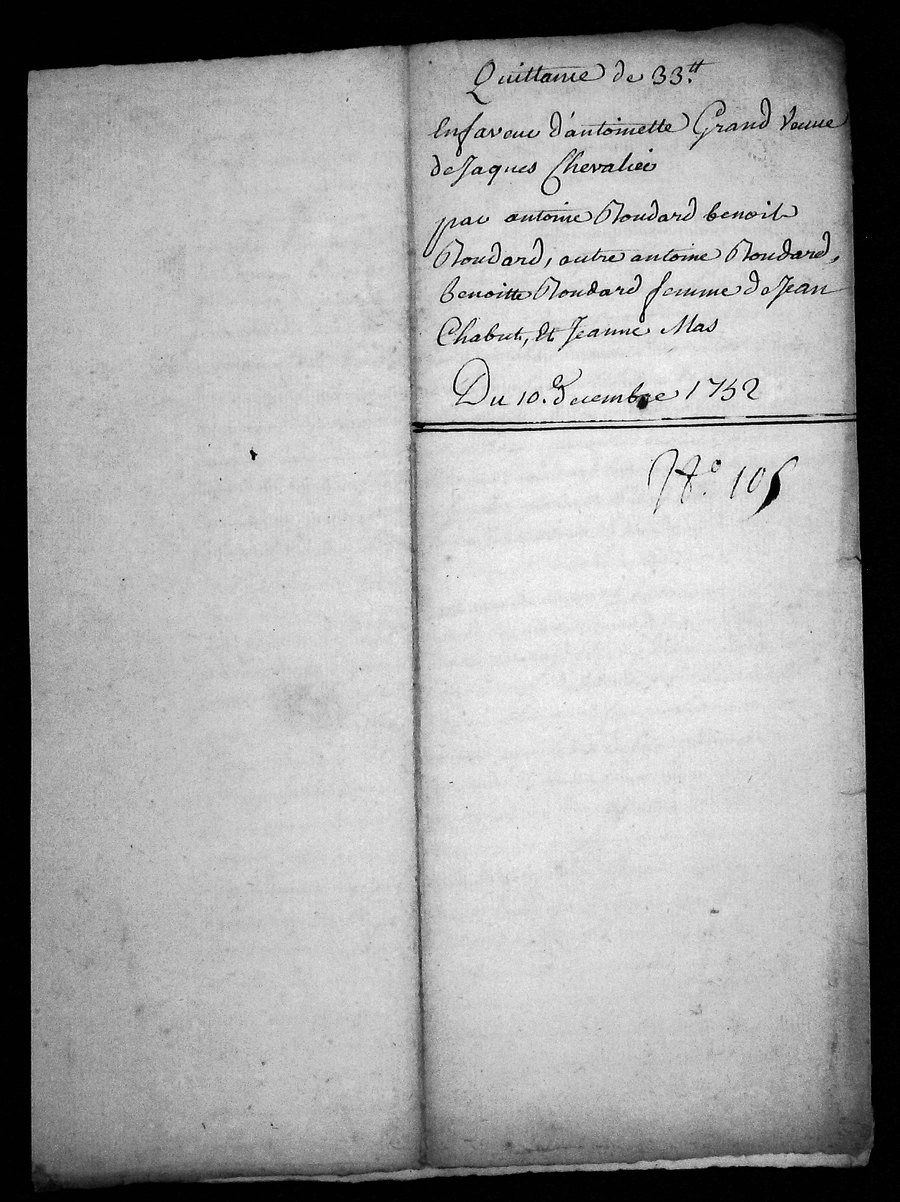 Quittance de 33.tt
Enfaveur d'antoinette Grand veuve
de Jaques Chevalier
par antoine Roudard benoit
Roudard, autre antoine Roudard,
benoitte Roudard femme de Jean
Chabut, Et Jeanne Mas
Du 10.e decembre 1752
N.o 105